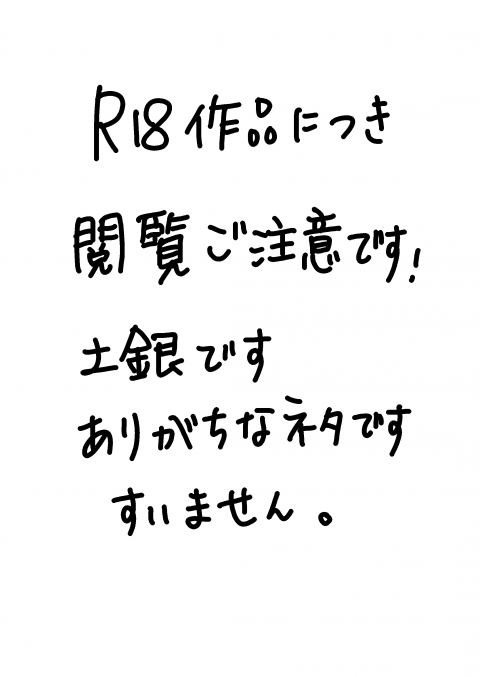 R18作品につき
閲覧ご注意です!
土銀です
ありがちなネタです
すいません。